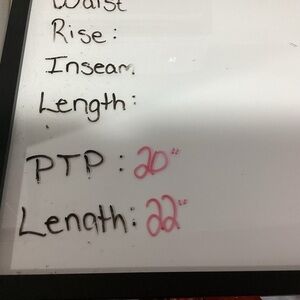 Waist
Rise:
Inseam
Length:
PTP: 20"
Length: 22"